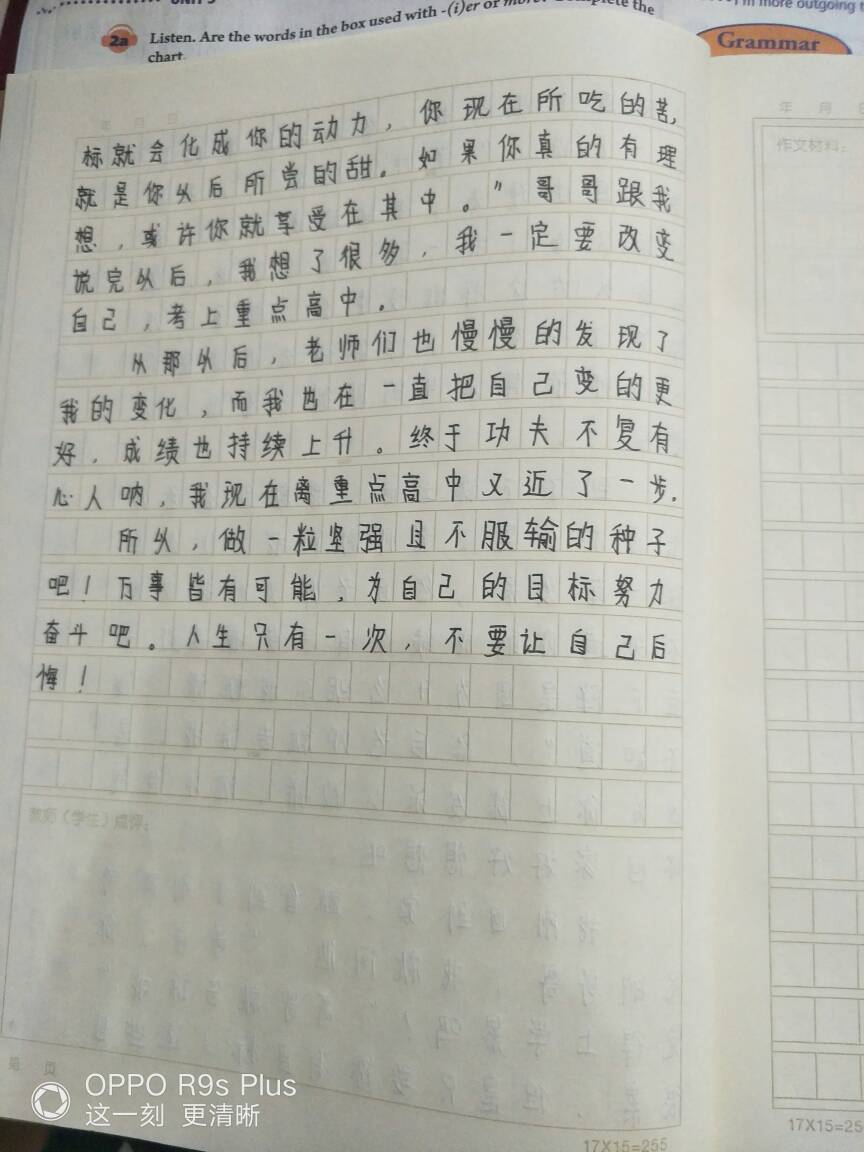 UNIT 3
2a Listen. Are the words in the box used with -(i)er or more? Complete the
chart.
in more outgoing
Grammar
年 月 日
标就会化成你的动力，你现在所吃的苦，
就是你从后所尝的甜。如果你真的有理
想，或许你就享受在其中。”哥哥跟我
说完从后，我想了很多，我一定要改变
自己，考上重点高中。
从那从后，老师们也慢慢的发现了
我的变化，而我也在一直把自己变的更
好，成绩也持续上升。终于功夫不复有
心人呐，我现在离重点高中又近了一步.
所从，做一粒坚强且不服输的种子
吧！万事皆有可能，为自己的目标努力
奋斗吧。人生只有一次，不要让自己后
悔！
教师（学生）点评：
第 页
17X15=255
年 月 日
作文材料：
17X15=25
OPPO R9s Plus
这一刻 更清晰